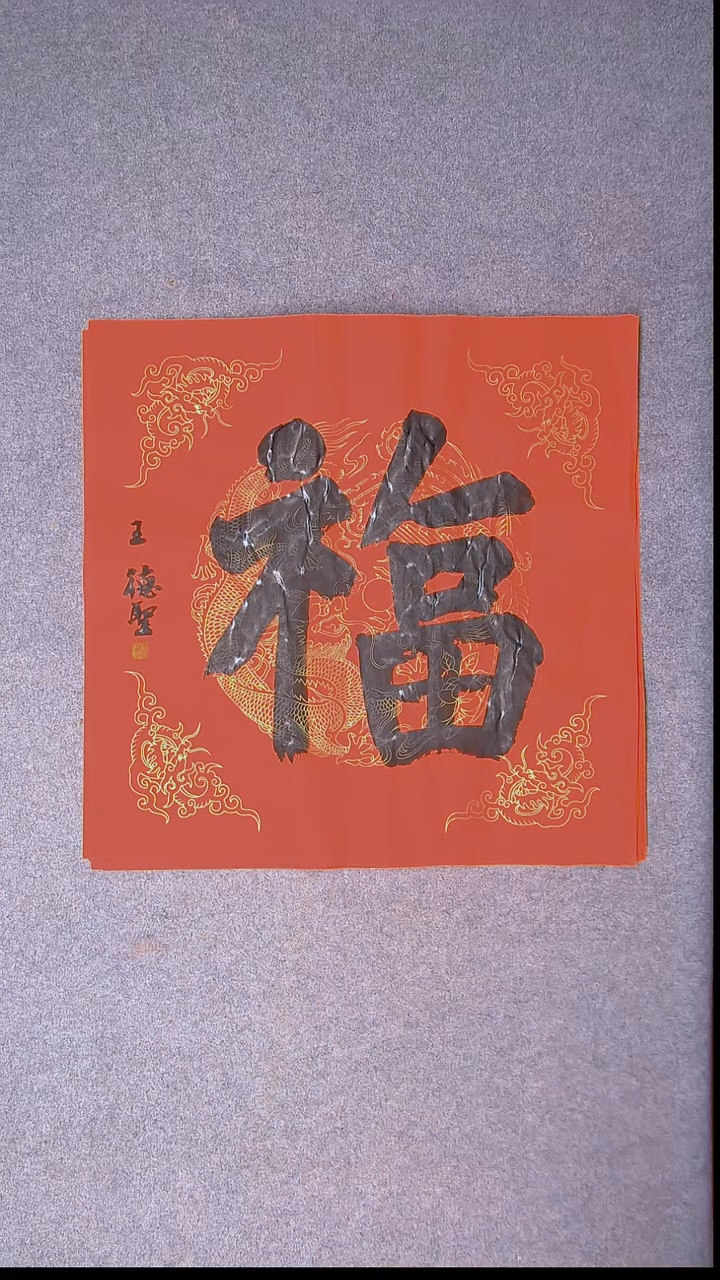 福
王德聖